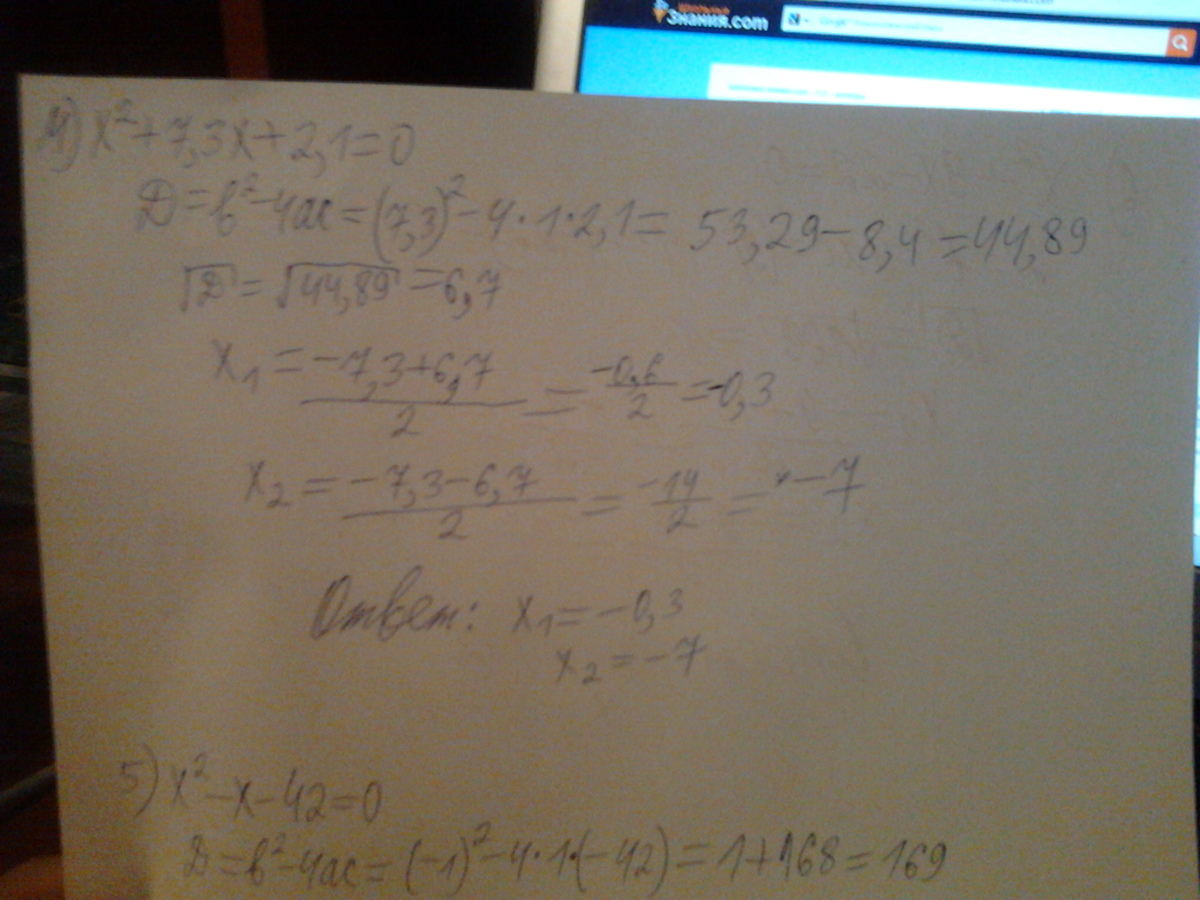 Знания.com
Google
4) x²+7,3x+2,1=0
D=b²-4ac=(7,3)²-4·1·2,1= 53,29-8,4=44,89
√D=√44,89=6,7
x₁=(-7,3+6,7)/2=-0,6/2=-0,3
x₂=(-7,3-6,7)/2=-14/2=-7
Ответ: x₁=-0,3
x₂=-7
5) x²-x-42=0
D=b²-4ac=(-1)²-4·1·(-42)=1+168=169